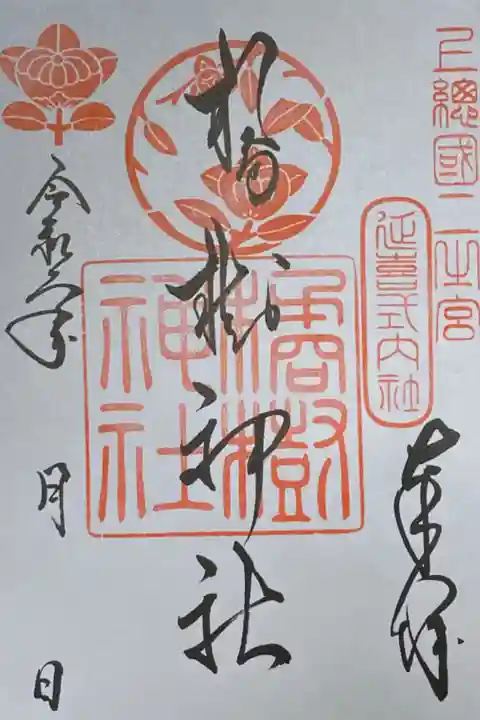 上總國二之宮
延喜式内社
奉拝
橘樹神社
橘樹神社
令和年
月
日